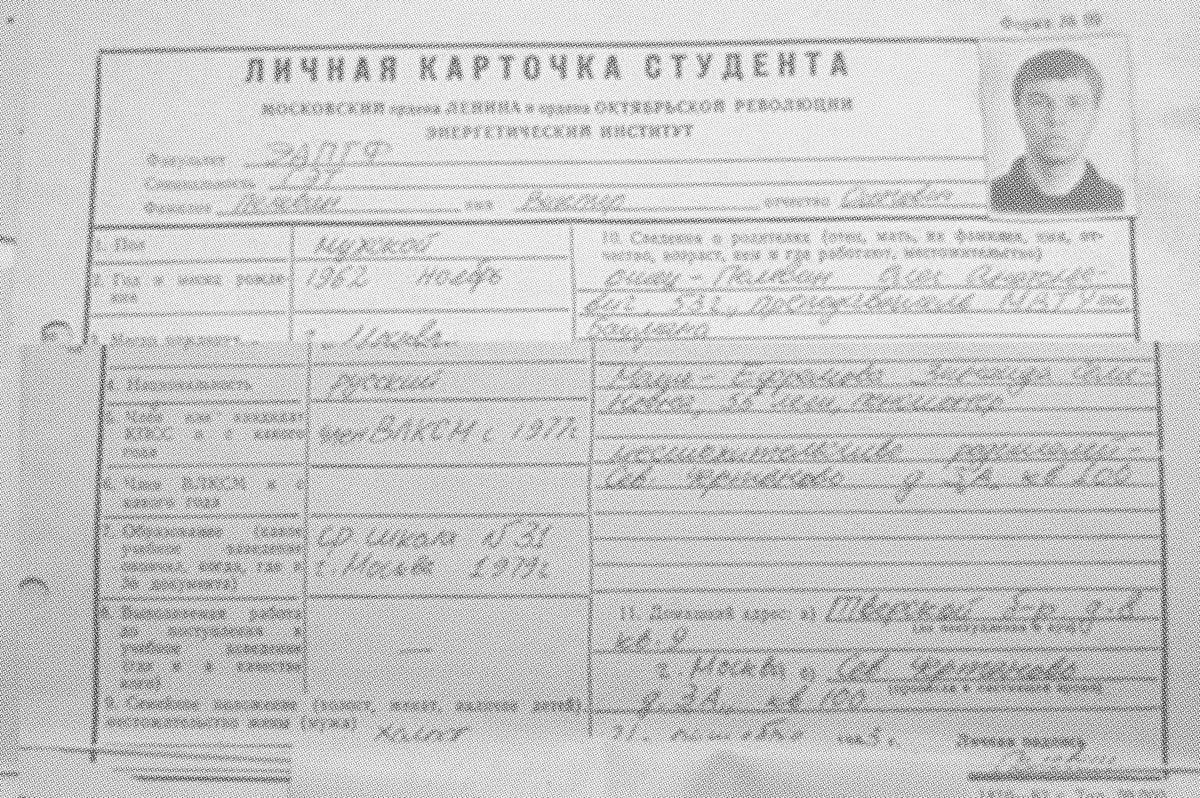 Форма № 99
ЛИЧНАЯ КАРТОЧКА СТУДЕНТА
МОСКОВСКИЙ ордена ЛЕНИНА и ордена ОКТЯБРЬСКОЙ РЕВОЛЮЦИИ
ЭНЕРГЕТИЧЕСКИЙ ИНСТИТУТ
Факультет ЭАПТФ
Специальность ГЭТ
Фамилия Пелевин имя Виктор отчество Олегович
1. Пол
мужской
2. Год и месяц рожде-
ния
1962 ноябрь
3. Место рождения
г. Москва
4. Национальность
русский
5. Член или кандидат
КПСС и с какого
года
член ВЛКСМ с 1977г
6. Член ВЛКСМ и с
какого года
7. Образование (какое
учебное заведение
окончил, когда, где и
№ документа)
ср школа № 31
г. Москва 1979г
8. Выполняемая работа
до поступления в
учебное заведение
(где и в качестве
кого)
—
9. Семейное положение (холост, женат, наличие детей)
местожительство жены (мужа)
холост
10. Сведения о родителях (отец, мать, их фамилия, имя, от-
чество, возраст, кем и где работают, местожительство)
отец - Пелевин Олег Анатолье-
вич, 53 г., преподаватель МВТУ им
Баумана
Мать - Ефремова Зинаида Семе-
новна, 56 лет, пенсионер
местожительство родителей -
Сев. Чертаново д 3А, кв 100
11. Домашний адрес: а) Тверской б-р д. 8
(до поступления в вуз)
кв. 9
г. Москва б) Сев Чертаново
(прописка в настоящее время)
д. 3А, кв 100
21. октября
Личная подпись